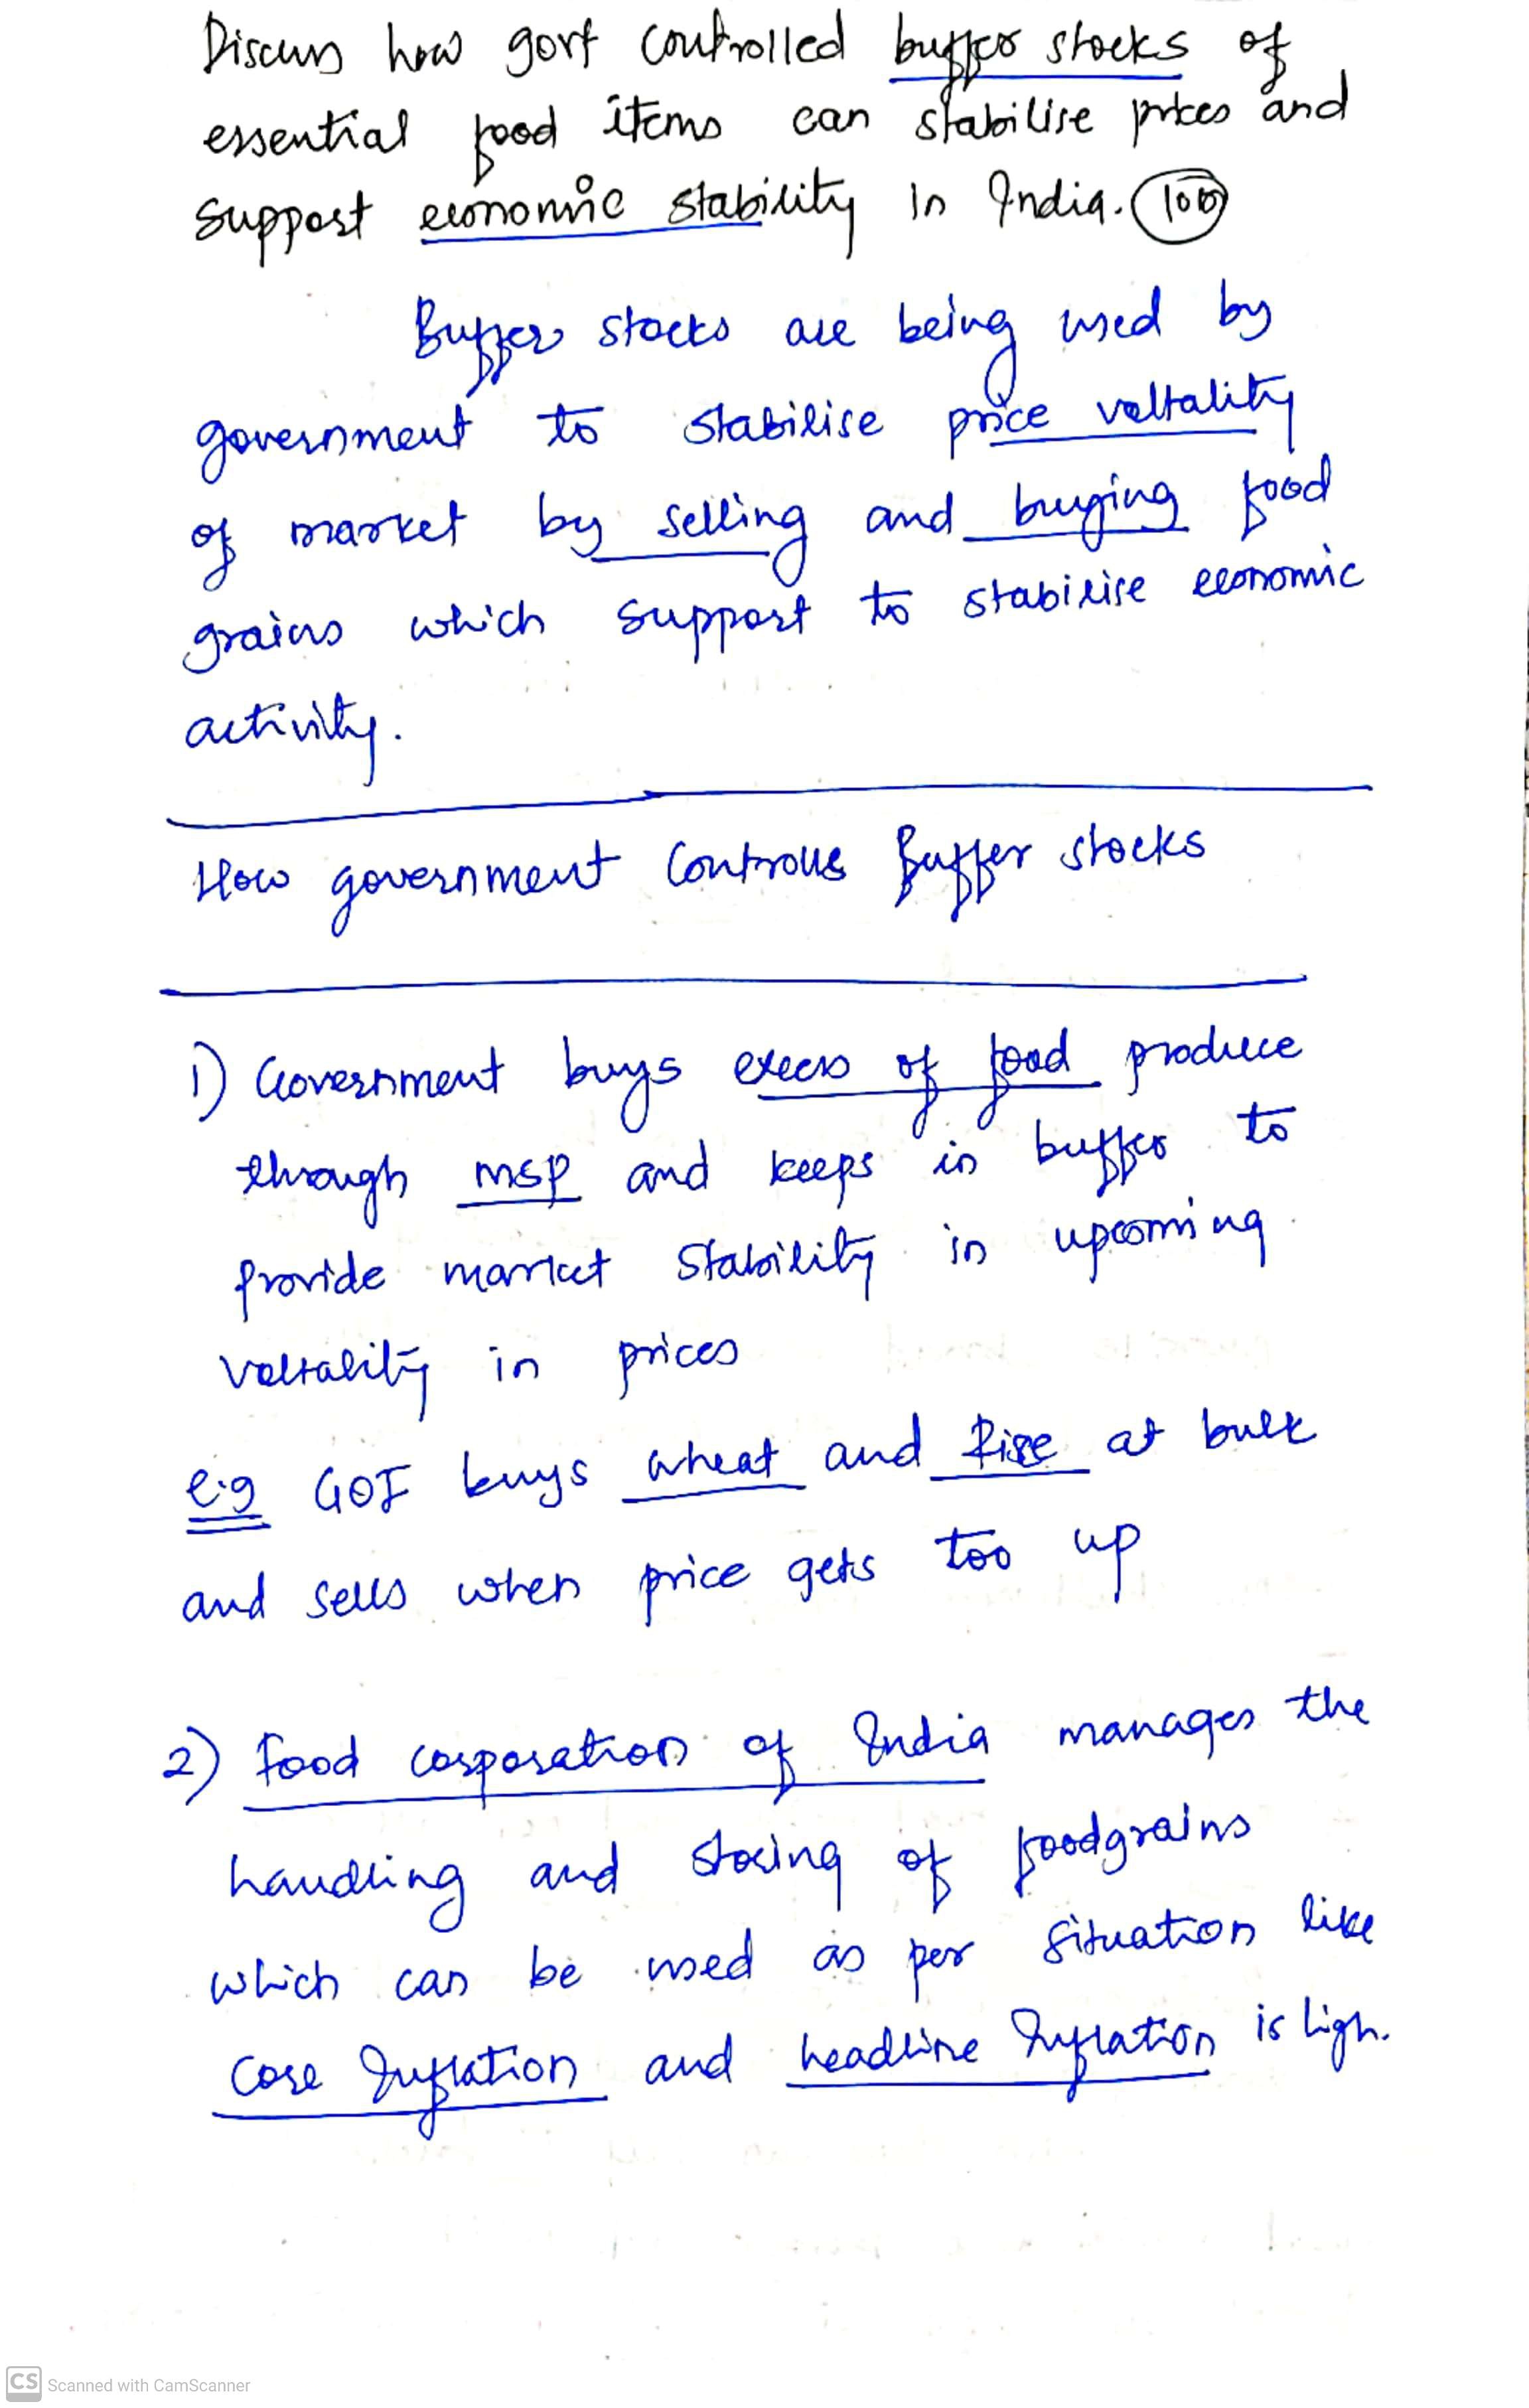 Discuss how govt controlled buffer stocks of
essential food items can stabilise prices and
support economic stability in India.
Buffer stocks are being used by
government to stabilise price voltality
of market by selling and buying food
grains which support to stabilise economic
activity.
How government controlls Buffer stocks
1) Government buys excess of food produce
through MSP and keeps in buffer to
provide market stability in upcoming
voltality in prices
e.g GOI buys wheat and Rice at bulk
and sells when price gets too up
2) Food corporation of India manages the
handling and storing of foodgrains
which can be used as per situation like
Core Inflation and headline Inflation is high.
CS Scanned with CamScanner